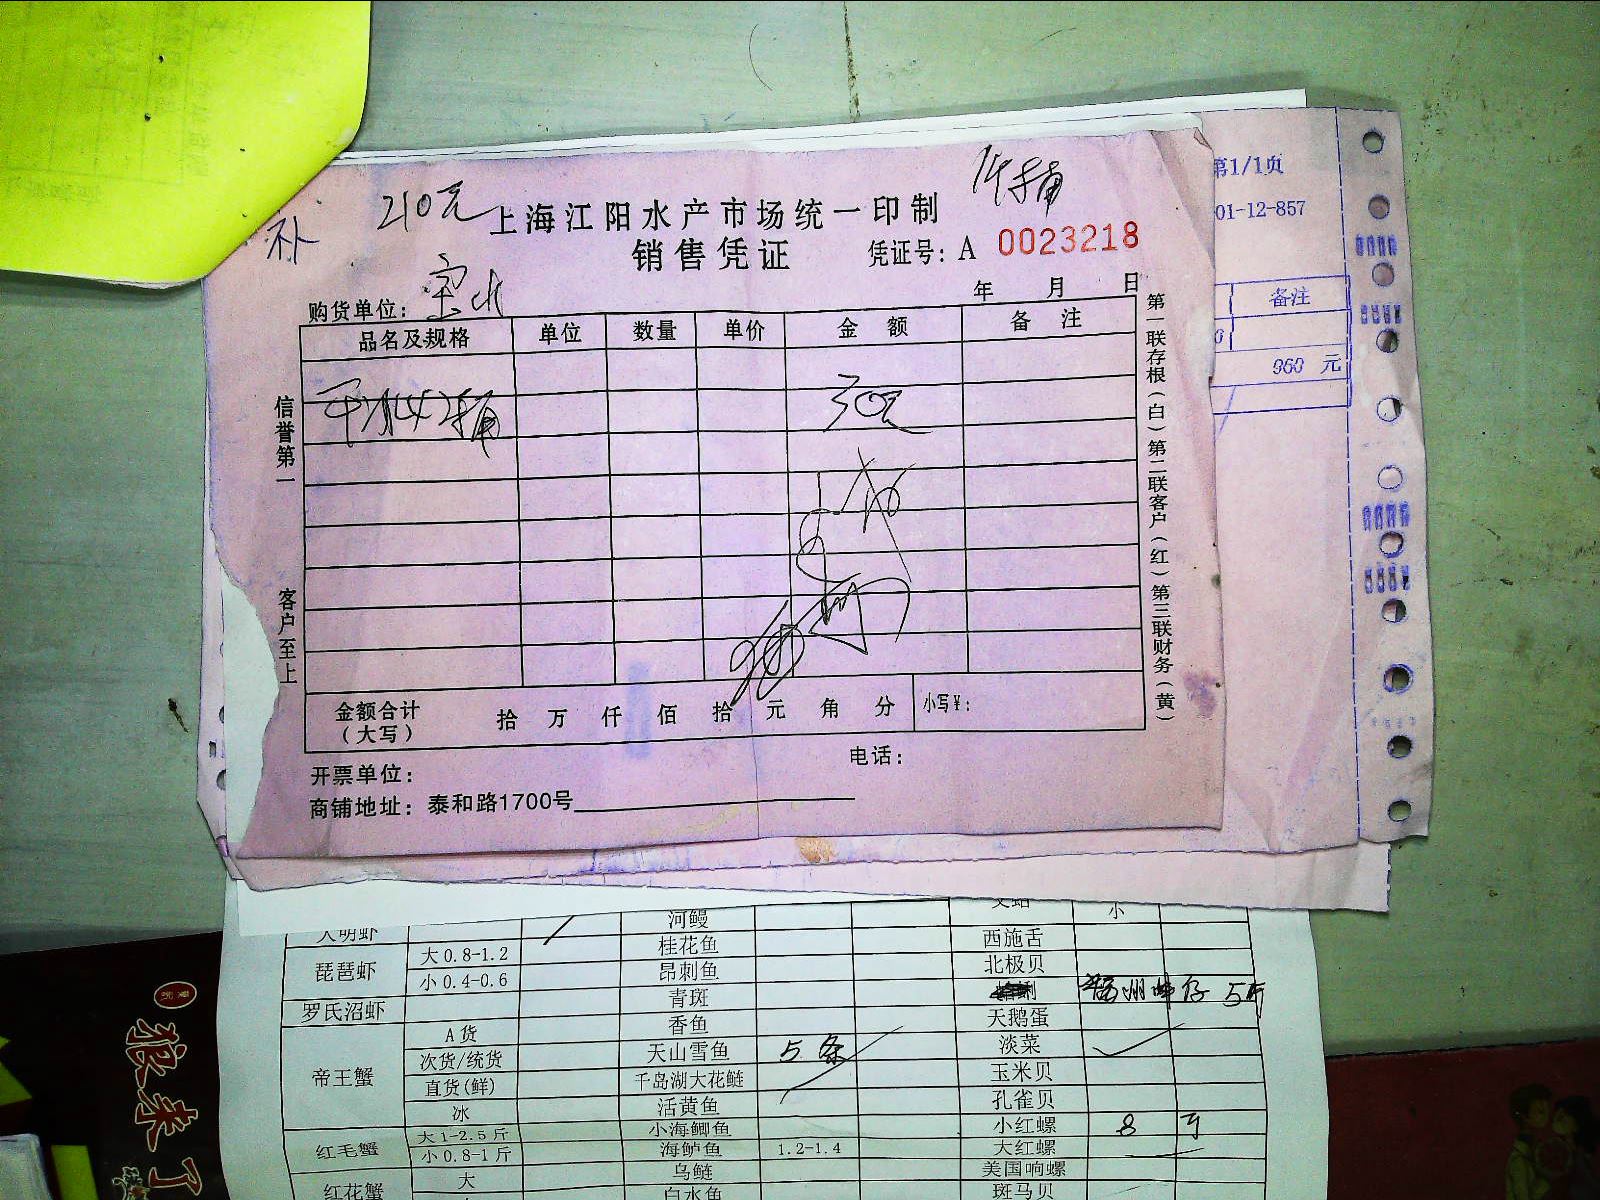 补 210元
上海江阳水产市场统一印制
销售凭证
凭证号: A 0023218
购货单位:
年 月 日
品名及规格 单位 数量 单价 金额 备注
30元
金额合计(大写) 拾 万 仟 佰 拾 元 角 分 小写¥:
开票单位: 电话:
商铺地址: 泰和路1700号
信誉第一 客户至上
第一联存根(白)第二联客户(红)第三联财务(黄)
第1/1页
01-12-857
备注
960 元
大明虾 河鳗 文蛤 小
琵琶虾 大0.8-1.2 桂花鱼 西施舌
小0.4-0.6 昂刺鱼 北极贝
罗氏沼虾 青斑 5斤
帝王蟹 A货 香鱼 天鹅蛋
次货/统货 天山雪鱼 5条 淡菜
直货(鲜) 千岛湖大花鲢 玉米贝
冰 活黄鱼 孔雀贝
红毛蟹 大1-2.5斤 小海鲫鱼 小红螺 8
小0.8-1斤 海鲈鱼 1.2-1.4 大红螺
红花蟹 大 乌鲢 美国响螺
白水鱼 斑马贝
狼来了